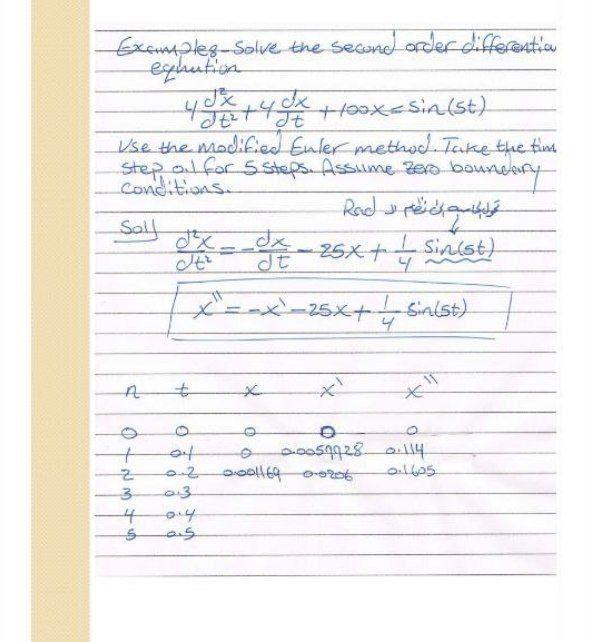 Examples_Solve the second order differentia
equation
4 d²x/dt² + 4 dx/dt + 100x = Sin(5t)
Use the modified Euler method. Take the tim
step 0.1 for 5 steps. Assume zero boundary
conditions.
Rad
Sol
d²x/dt² = -dx/dt - 25x + 1/4 Sin(5t)
x'' = -x' - 25x + 1/4 Sin(5t)
n t x x' x''
0 0 0 0 0
1 0.1 0 0.114
2 0.2 0.001169 0.0206 0.1605
3 0.3
4 0.4
5 0.5